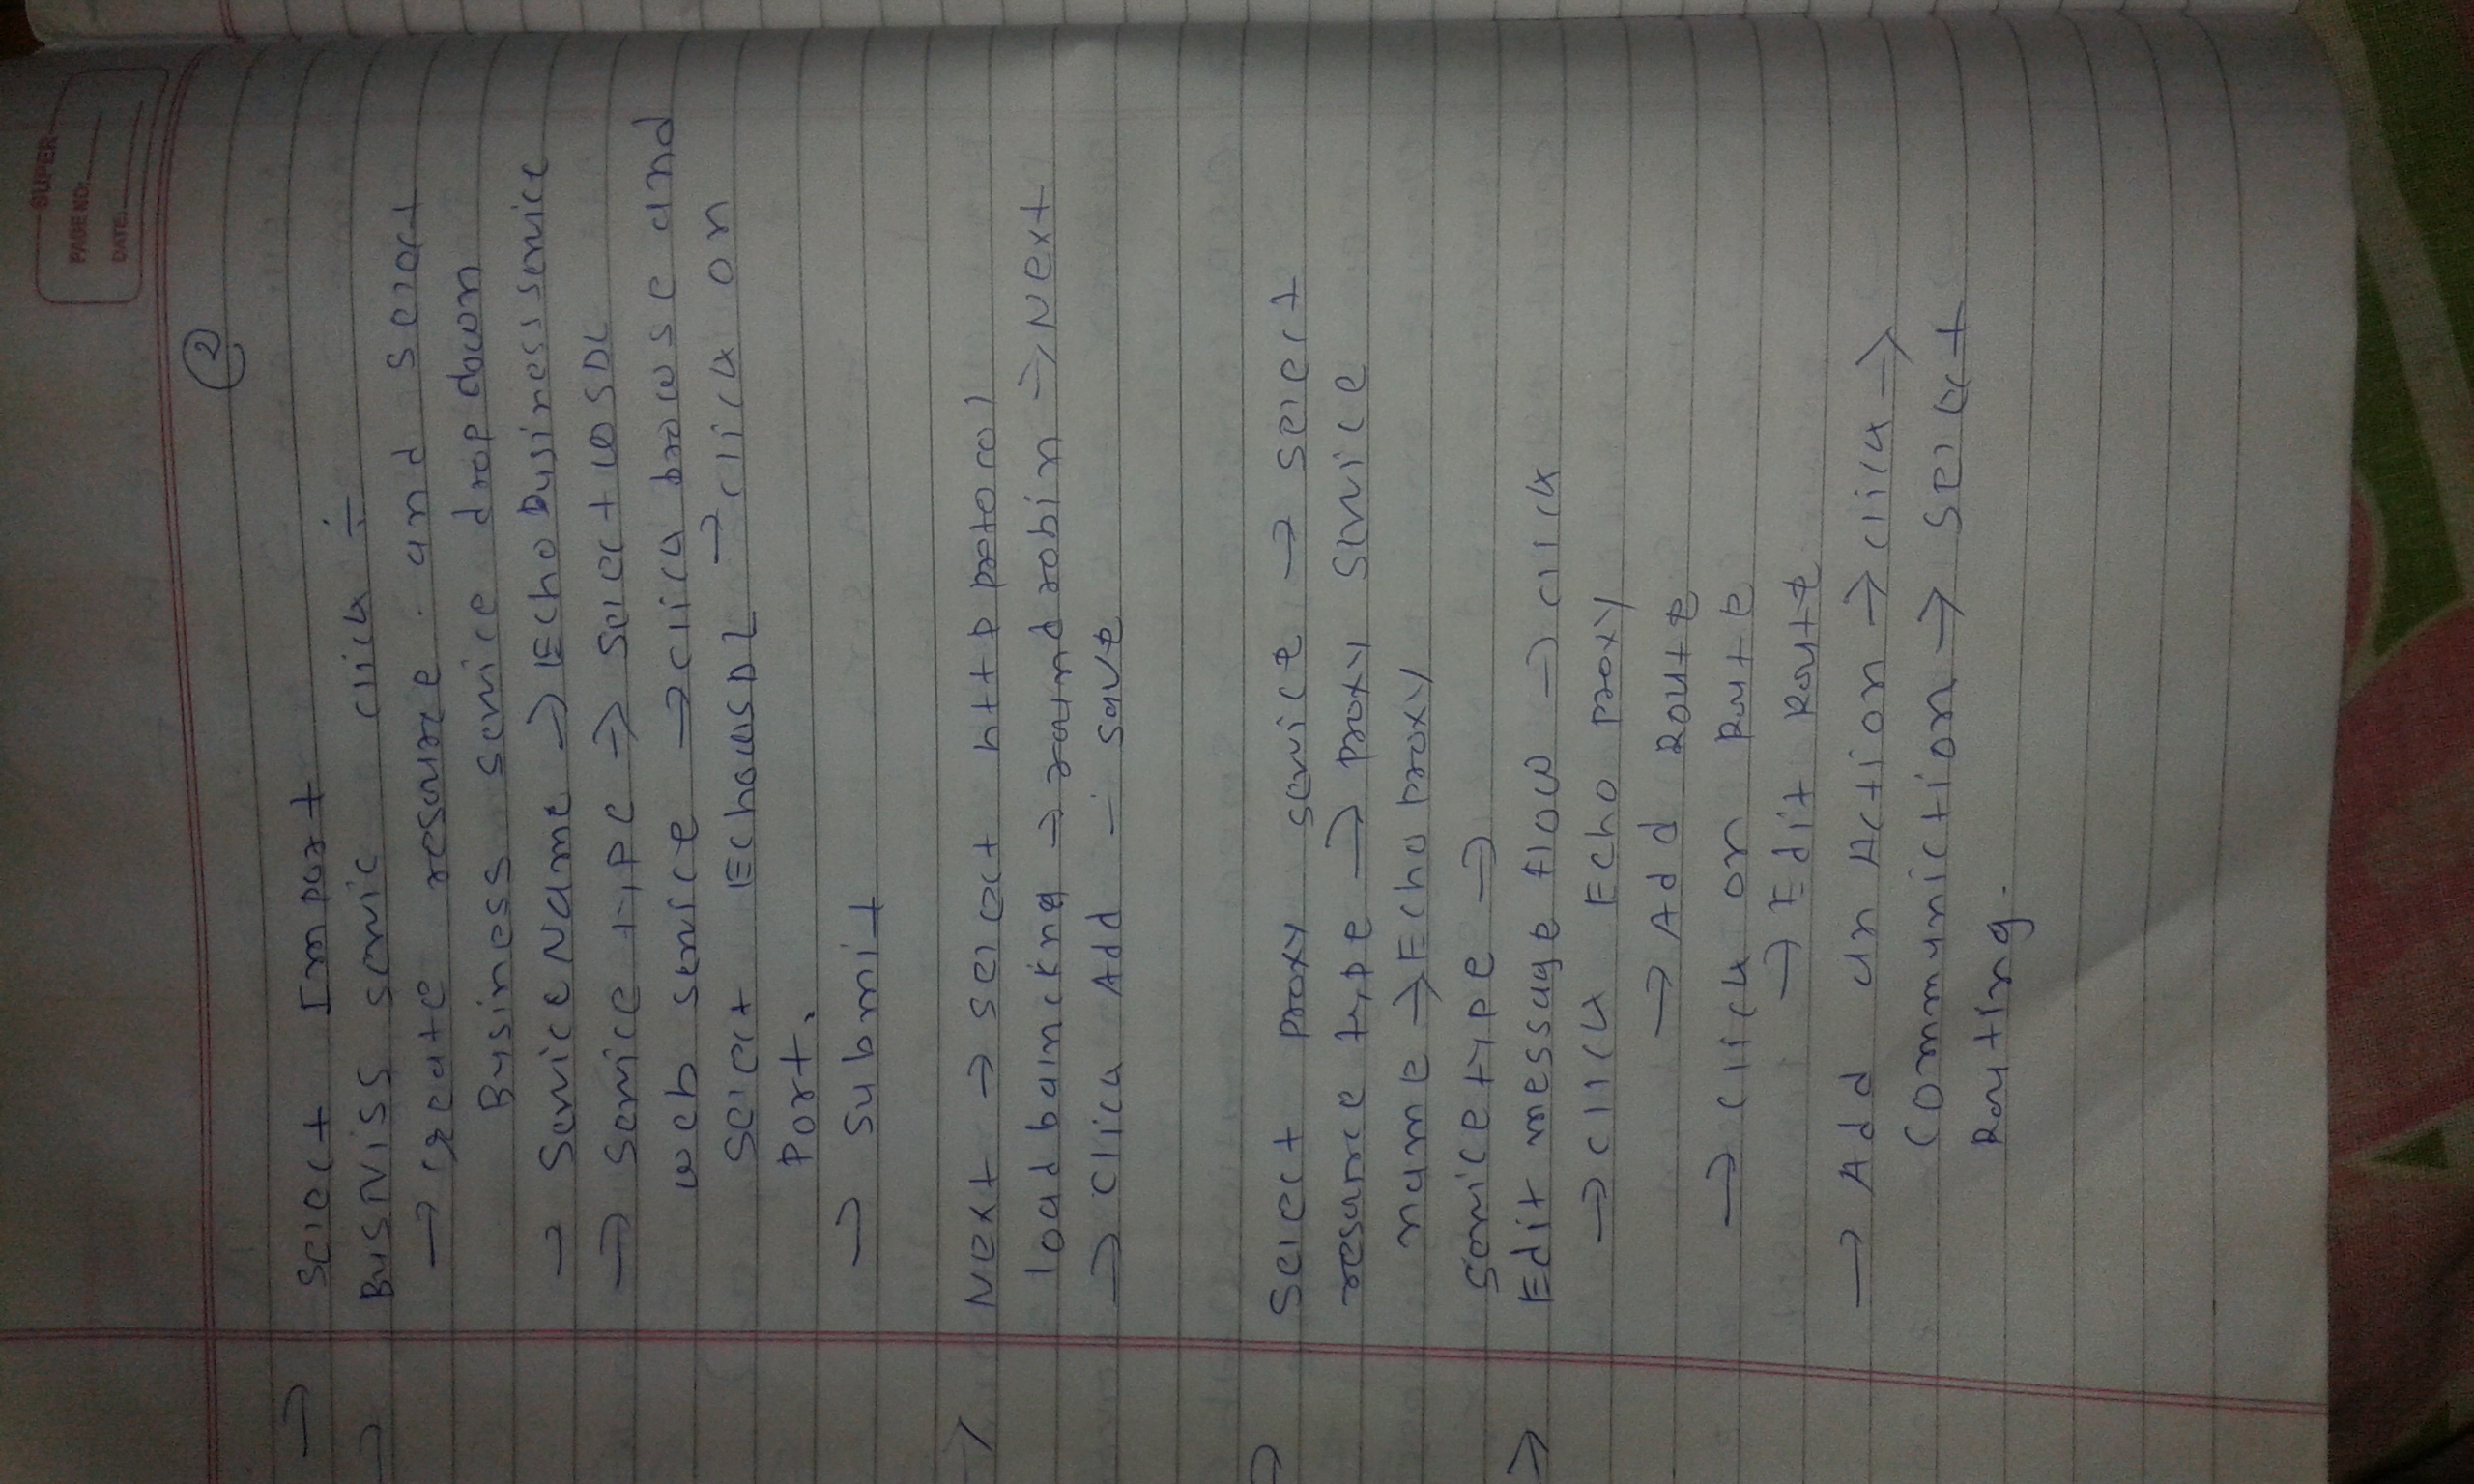 SUPER
PAGE NO:
DATE:
2
→ Select Import
→ BusNiss servic click ÷
→ create resource. and select
Business service drop down
→ Service Name → Echo Business service
→ Service type → Select WSDL
web service → click browse and
select EchoWSDL → click on
Port.
→ Submit
→ Next → select http protocol
load balncking → round robin → Next
→ Click Add - save
→ Select proxy service → select
resource type → proxy service
name → Echo proxy
service type →
→ Edit message flow → click
→ click Echo proxy
→ Add Route
→ click on Route
→ Edit Route
→ Add an Action → click →
Communiction → Select
Routing.